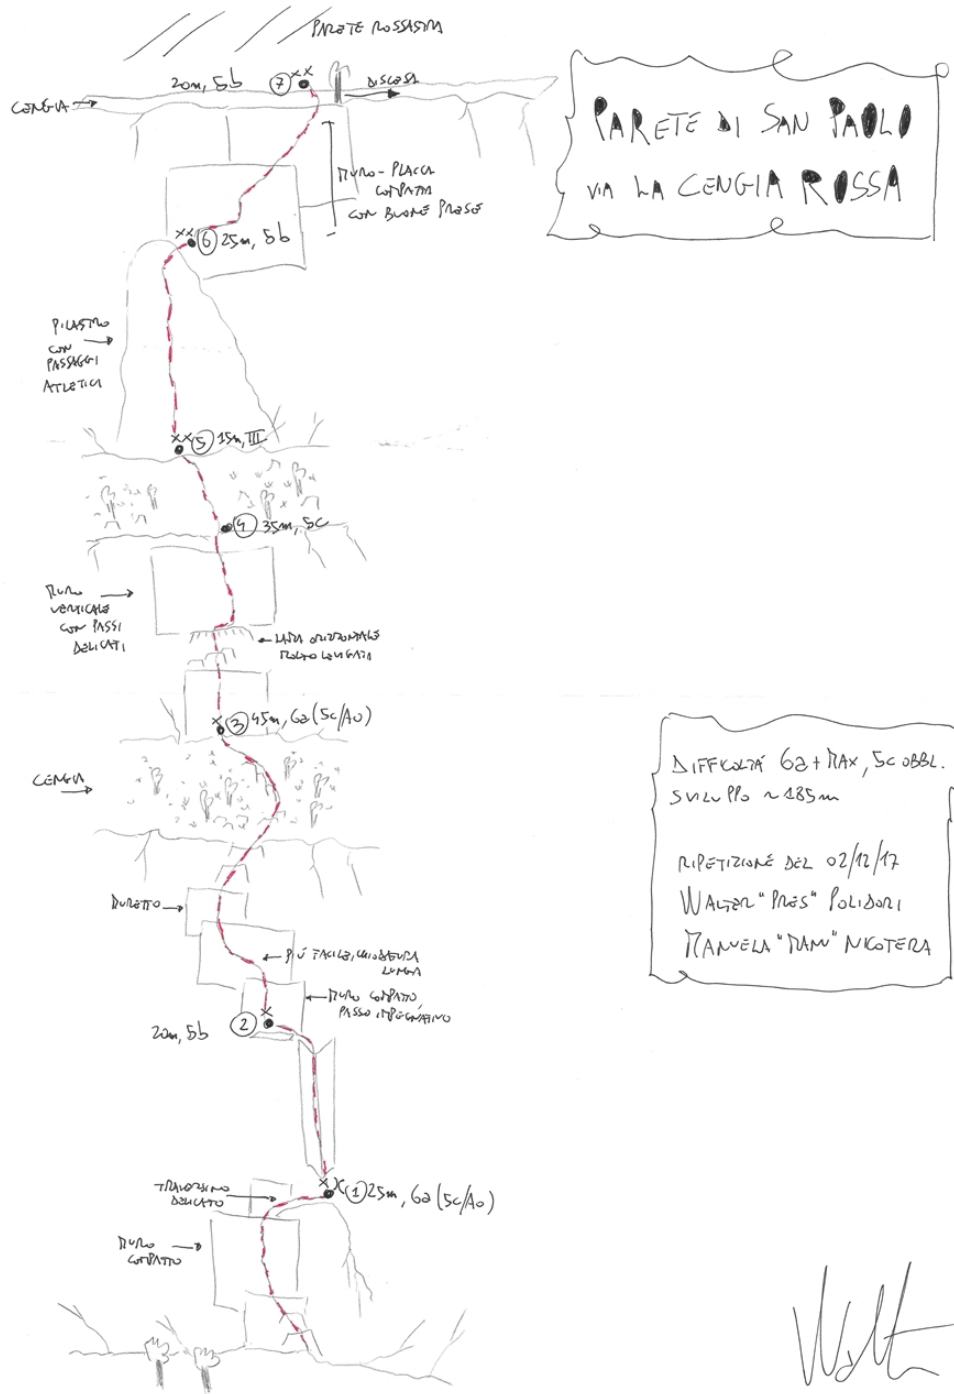 PARETE ROSSASTRA
20m, 5b 7 xx
DISCESA
CENGIA
PARETE DI SAN PAOLO
VIA LA CENGIA ROSSA
MURO-PLACCA
COMPATTA
CON BUONE PRESE
xx 6 25m, 5b
PILASTRO
CON
PASSAGGI
ATLETICI
xx 5 15m, III
4 35m, 5c
MURO
VERTICALE
CON PASSI
DELICATI
LAMA ORIZZONTALE
MOLTO LEVIGATA
x 3 45m, 6a (5c/A0)
CENGIA
DIFFICOLTÁ 6a+ MAX, 5c OBBL.
SVILUPPO ~ 185m
RIPETIZIONE DEL 02/12/17
WALTER "PRES" POLIDORI
MANUELA "MANU" NICOTERA
MURETTO
PIÚ FACILE, CHIODATURA
LUNGA
MURO COMPATTO,
PASSO IMPEGNATIVO
x 2
20m, 5b
TRAVERSINO
DELICATO
xx 1 25m, 6a (5c/A0)
MURO
COMPATTO